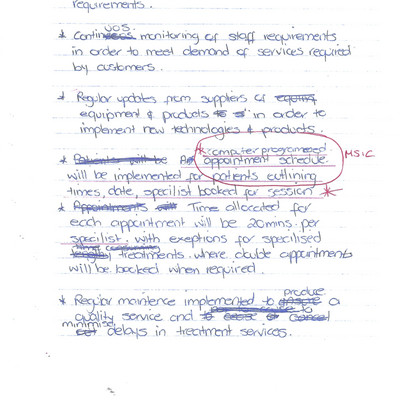 requirements.
* Continuous monitoring of staff requirements
in order to meet demand of services required
by customers.
* Regular updates from suppliers of
equipment & products in order to
implement new technologies & products.
* computer programmed
* Patients will be An appointment schedule MSIC
will be implemented for patients outlining
times, date, specilist booked for session *
* Appointments will Time allocated for
each appointment will be 20mins per
specilist, with exeptions for specilised
lengthy treatments where double appointments
will be booked when required.
produce
* Regular maintence implemented to ensure a
quality service and
minimise cut delays in treatment services.